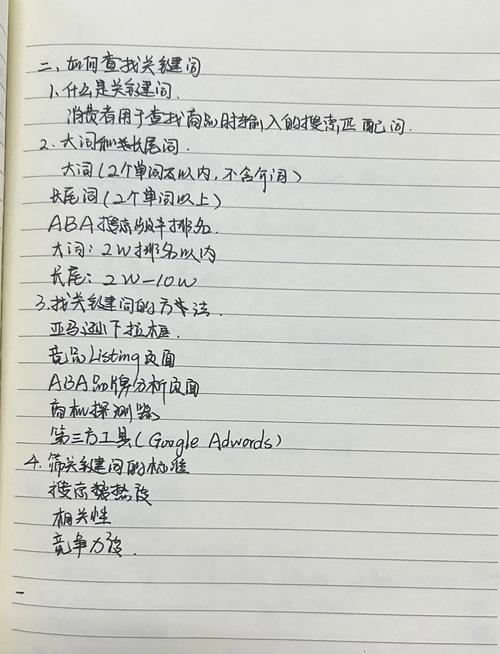 二、如何查找关键词
1.什么是关键词.
消费者用于查找商品时输入的搜索匹配词.
2.大词和长尾词.
大词(2个单词及以内,不含介词)
长尾词(2个单词以上)
ABA搜索频率排名.
大词:2W排名以内
长尾:2W-10W
3.找关键词的方法.
亚马逊下拉框.
竞品Listing页面
ABA品牌分析页面
商机探测器
第三方工具(Google Adwords)
4.筛关键词的标准
搜索热度
相关性
竞争力度.